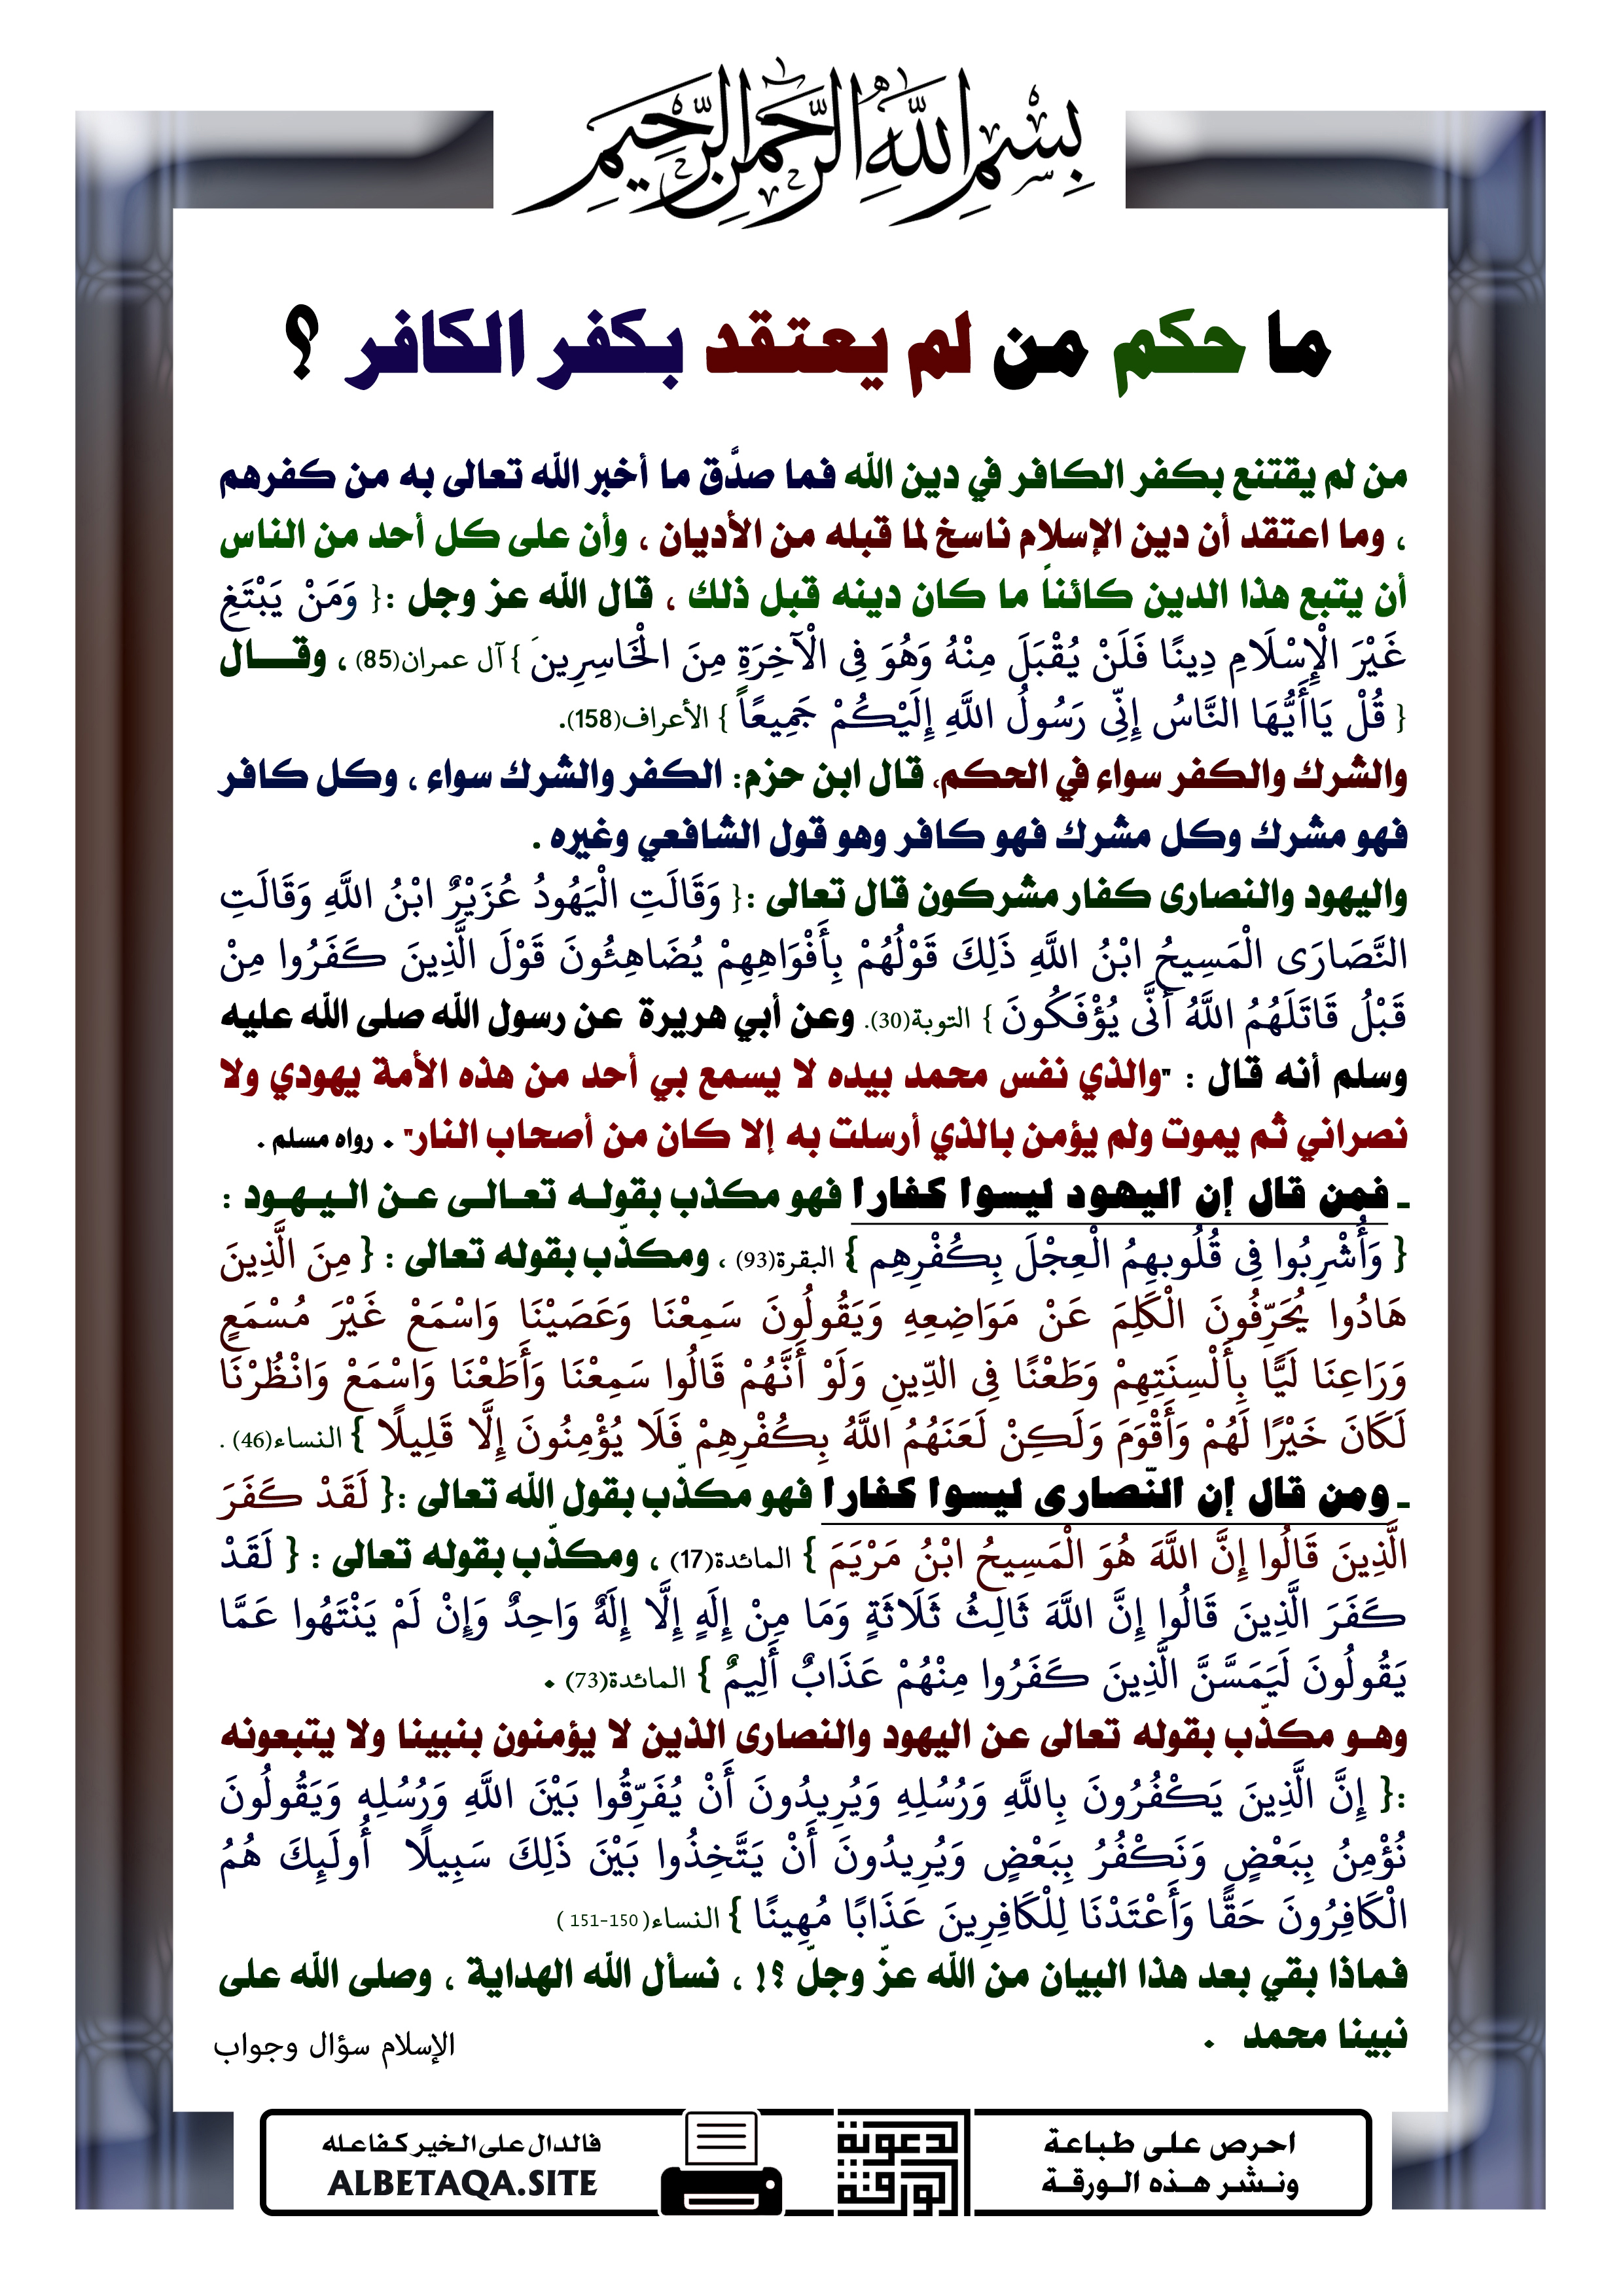 بِسْمِ اللَّهِ الرَّحْمَٰنِ الرَّحِيمِ
ما حكم من لم يعتقد بكفر الكافر ؟
من لم يقتنع بكفر الكافر في دين الله فما صدَّق ما أخبر الله تعالى به من كفرهم
، وما اعتقد أن دين الإسلام ناسخ لما قبله من الأديان ، وأن على كل أحد من الناس
أن يتبع هذا الدين كائناً ما كان دينه قبل ذلك ، قال الله عز وجل :{ وَمَنْ يَبْتَغِ
غَيْرَ الْإِسْلَامِ دِينًا فَلَنْ يُقْبَلَ مِنْهُ وَهُوَ فِي الْآخِرَةِ مِنَ الْخَاسِرِينَ } آل عمران(85) ، وقــــال
{ قُلْ يَاأَيُّهَا النَّاسُ إِنِّي رَسُولُ اللَّهِ إِلَيْكُمْ جَمِيعًاً } الأعراف(158).
والشرك والكفر سواء في الحكم، قال ابن حزم: الكفر والشرك سواء ، وكل كافر
فهو مشرك وكل مشرك فهو كافر وهو قول الشافعي وغيره .
واليهود والنصارى كفار مشركون قال تعالى :{ وَقَالَتِ الْيَهُودُ عُزَيْرٌ ابْنُ اللَّهِ وَقَالَتِ
النَّصَارَى الْمَسِيحُ ابْنُ اللَّهِ ذَلِكَ قَوْلُهُمْ بِأَفْوَاهِهِمْ يُضَاهِئُونَ قَوْلَ الَّذِينَ كَفَرُوا مِنْ
قَبْلُ قَاتَلَهُمُ اللَّهُ أَنَّى يُؤْفَكُونَ } التوبة(30). وعن أبي هريرة عن رسول الله صلى الله عليه
وسلم أنه قال : "والذي نفس محمد بيده لا يسمع بي أحد من هذه الأمة يهودي ولا
نصراني ثم يموت ولم يؤمن بالذي أرسلت به إلا كان من أصحاب النار" . رواه مسلم .
ـ فمن قال إن اليهود ليسوا كفارا فهو مكذب بقولـه تعـالـى عـن الـيـهـود :
{ وَأُشْرِبُوا فِي قُلُوبِهِمُ الْعِجْلَ بِكُفْرِهِم } البقرة(93) ، ومكذّب بقوله تعالى : { مِنَ الَّذِينَ
هَادُوا يُحَرِّفُونَ الْكَلِمَ عَنْ مَوَاضِعِهِ وَيَقُولُونَ سَمِعْنَا وَعَصَيْنَا وَاسْمَعْ غَيْرَ مُسْمَعٍ
وَرَاعِنَا لَيًّا بِأَلْسِنَتِهِمْ وَطَعْنًا فِي الدِّينِ وَلَوْ أَنَّهُمْ قَالُوا سَمِعْنَا وَأَطَعْنَا وَاسْمَعْ وَانْظُرْنَا
لَكَانَ خَيْرًا لَهُمْ وَأَقْوَمَ وَلَكِنْ لَعَنَهُمُ اللَّهُ بِكُفْرِهِمْ فَلَا يُؤْمِنُونَ إِلَّا قَلِيلًا } النساء(46) .
ـ ومن قال إن النّصارى ليسوا كفارا فهو مكذّب بقول الله تعالى :{ لَقَدْ كَفَرَ
الَّذِينَ قَالُوا إِنَّ اللَّهَ هُوَ الْمَسِيحُ ابْنُ مَرْيَمَ } المائدة(17) ، ومكذّب بقوله تعالى : { لَقَدْ
كَفَرَ الَّذِينَ قَالُوا إِنَّ اللَّهَ ثَالِثُ ثَلَاثَةٍ وَمَا مِنْ إِلَهٍ إِلَّا إِلَهٌ وَاحِدٌ وَإِنْ لَمْ يَنْتَهُوا عَمَّا
يَقُولُونَ لَيَمَسَّنَّ الَّذِينَ كَفَرُوا مِنْهُمْ عَذَابٌ أَلِيمٌ } المائدة(73) .
وهـو مكذّب بقوله تعالى عن اليهود والنصارى الذين لا يؤمنون بنبينا ولا يتبعونه
:{ إِنَّ الَّذِينَ يَكْفُرُونَ بِاللَّهِ وَرُسُلِهِ وَيُرِيدُونَ أَنْ يُفَرِّقُوا بَيْنَ اللَّهِ وَرُسُلِهِ وَيَقُولُونَ
نُؤْمِنُ بِبَعْضٍ وَنَكْفُرُ بِبَعْضٍ وَيُرِيدُونَ أَنْ يَتَّخِذُوا بَيْنَ ذَلِكَ سَبِيلًا أُولَئِكَ هُمُ
الْكَافِرُونَ حَقًّا وَأَعْتَدْنَا لِلْكَافِرِينَ عَذَابًا مُهِينًا } النساء( 150-151 )
فماذا بقي بعد هذا البيان من الله عزّ وجلّ ؟! ، نسأل الله الهداية ، وصلى الله على
نبينا محمد .
الإسلام سؤال وجواب
احرص على طباعة
ونـشـر هـذه الـورقـة
الدعوية
الورقة
فالدال على الخير كفاعله
ALBETAQA.SITE